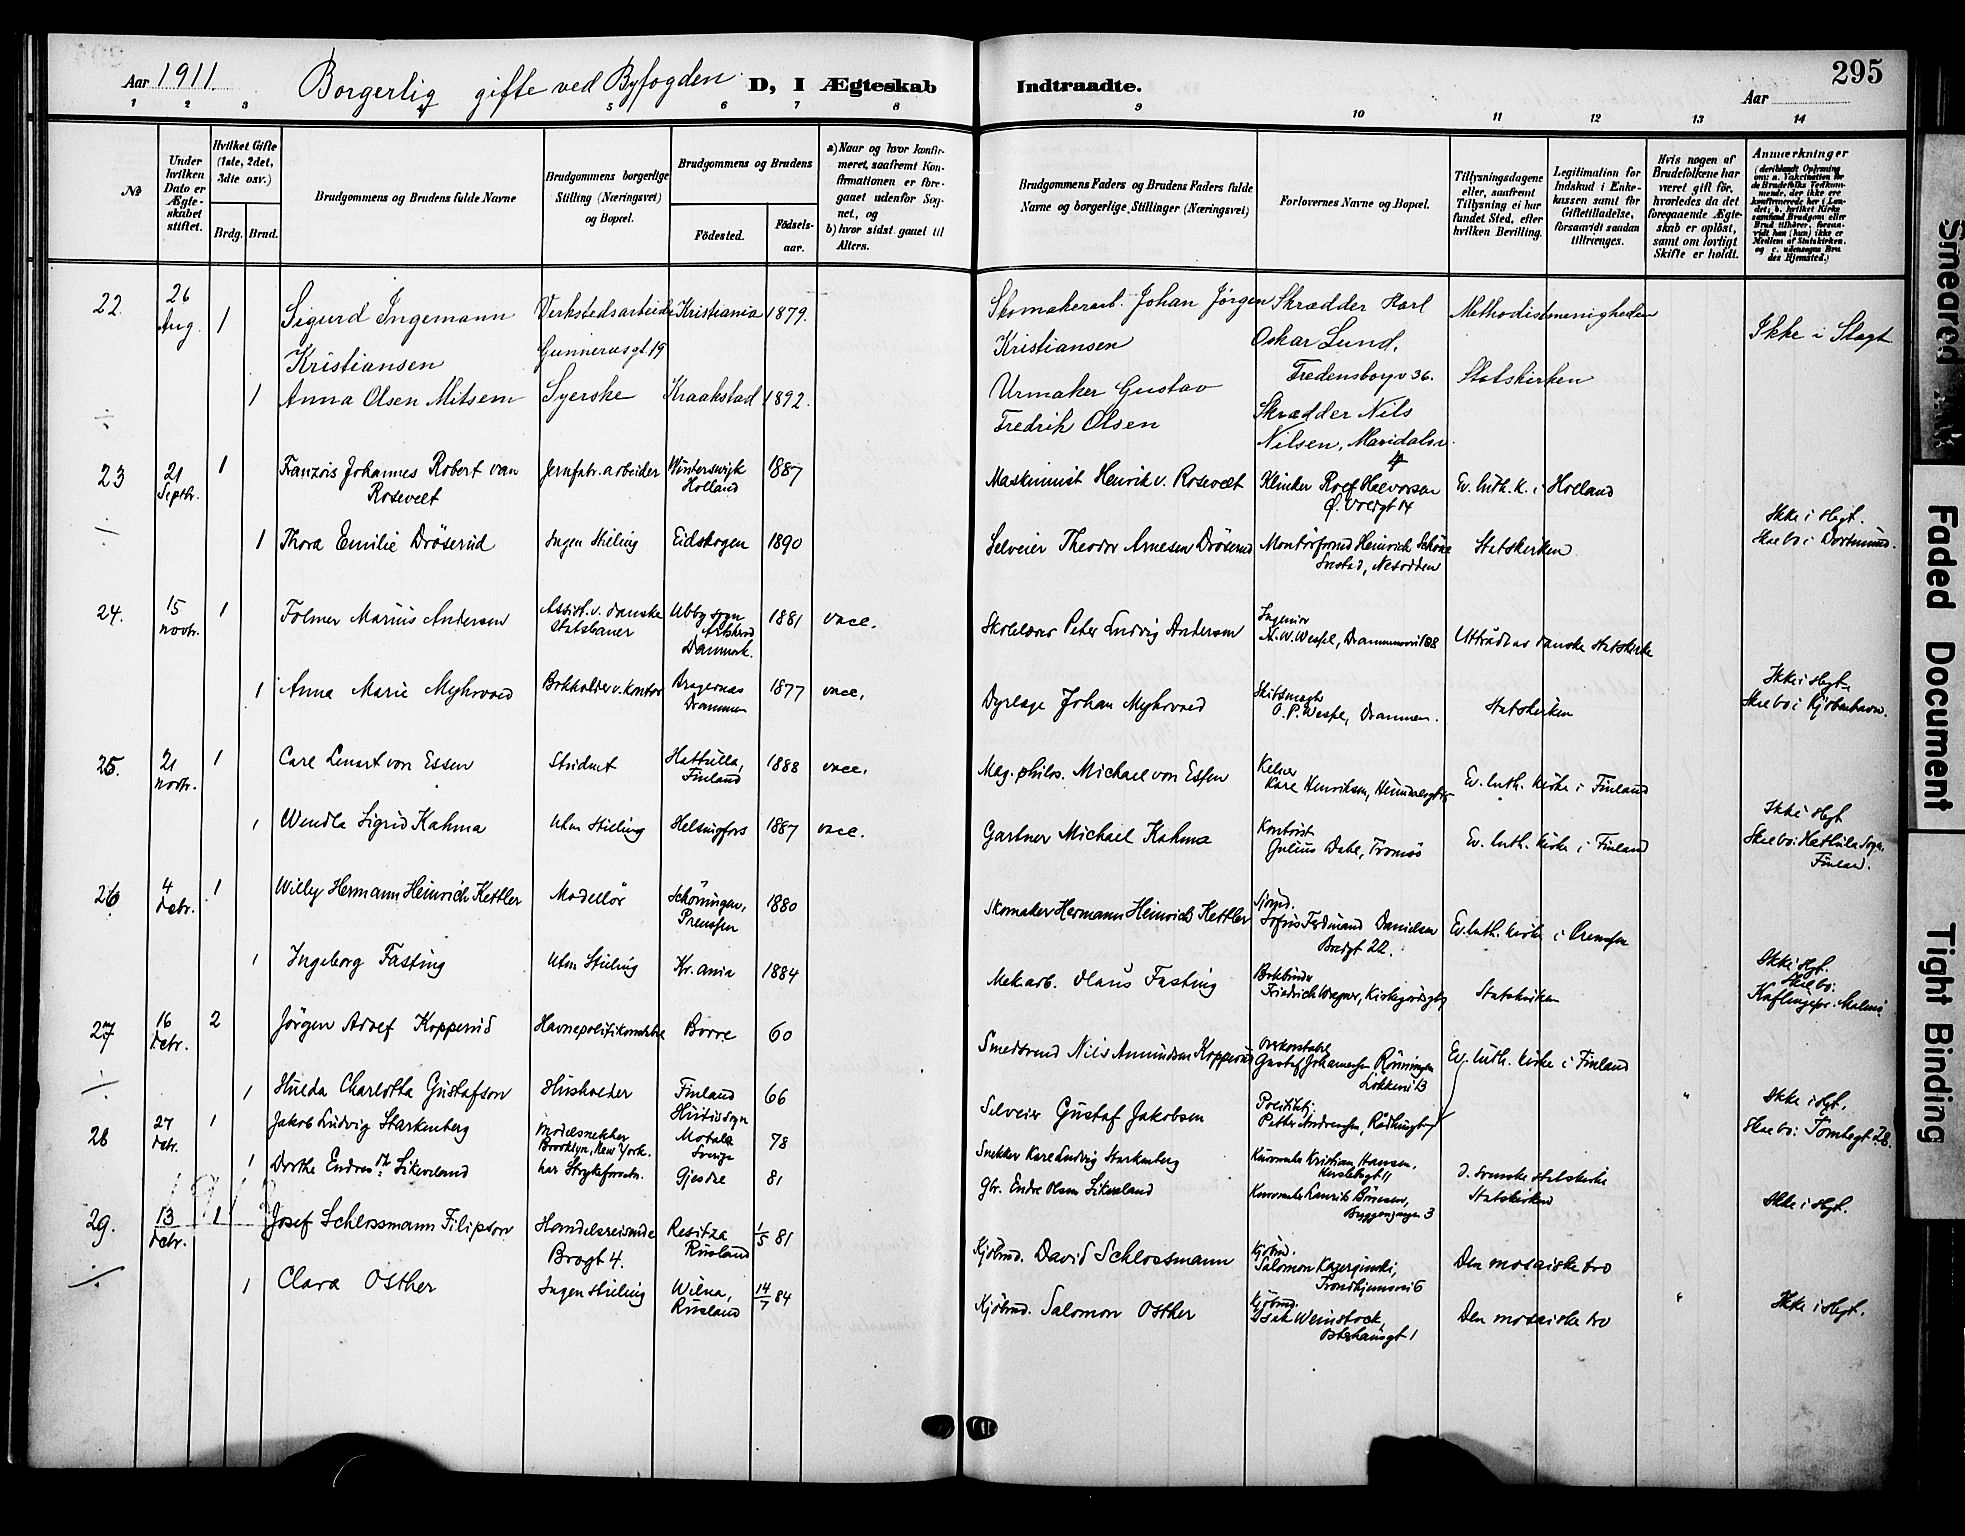 295
Aar 1911. Borgerlig gifte ved Byfogden D, I Ægteskab Indtraadte. Aar
1 2 3 4 5 6 7 8 9 10 11 12 13 14
No
Under hvilken Dato er Ægteskabet stiftet.
Hvilket Gifte (1ste, 2det, 3die osv.)
Brdg. Brud.
Brudgommens og Brudens fulde Navne
Brudgommens borgerlige Stilling (Næringsvei) og Bopæl.
Brudgommens og Brudens
Fødested.
Fødselsaar.
a) Naar og hvor konfirmeret, saafremt Konfirmationen er foregaaet udenfor Sognet, og
b) hvor sidst gaaet til Alters.
Brudgommens Faders og Brudens Faders fulde Navne og borgerlige Stillinger (Næringsvei)
Forlovernes Navne og Bopæl.
Tillysningsdagene eller, saafremt Tillysning ei har fundet Sted, efter hvilken Bevilling.
Legitimation for Indskud i Enkekassen samt for Giftetilladelse, forsaavidt saadan tiltrænges.
Hvis nogen af Brudefolkene har været gift før, hvorledes da det foregaaende Ægteskab er opløst, samt om lovligt Skifte er holdt.
Anmerkninger
22. 26 Aug. 1 Sigurd Ingemann Kristiansen Verkstedsarbeider Gunnerusgt. 19 Kristiania 1879. Skomakerarb. Johan Jørgen Kristiansen Skrædder Karl Oskar Lund, Fredensborgv 36. Methodistmenigheden Ikke i Slægt
1 Anna Olsen Mitsem Syerske Kraakstad 1892. Urmaker Gustav Fredrik Olsen Skrædder Nils Nilsen, Maridalsv. 4 Statskirken
23 21 Septr. 1 Franzois Johannes Robert van Rosevelt Jernstr. arbeider Winterswijk Holland 1887 Maskinmist Henrik v. Rosevelt Klinker Rolf Halvorsen Ø. Voldgt 14 Ev. luth. K. i Holland
1 Thora Emilie Dröserud Ingen Stilling Eidskogen 1890 Selveier Theodor Arnesen Dröserud Montörformd Heinrich Schöne Nesodden Statskirken Ikke i slegt. Skal bo i Dortmund.
24. 15 novtr. 1 Folmer Marius Andersen Assist. v. danske statsbaner Ubby sogn Danmark. 1881 vacc. Skolelærer Peter Ludvig Andersen Ingeniør A. W. Wespel, Drammensvei 88 Utträdt av danske statskirke
1 Anna Marie Myhrvold Bokholder v. kontor Bragernæs Drammen 1877 vacc. Dyrlæge Johan Myhrvold O. P. Wespel, Drammen. Statskirken Ikke i slegt. Skal bo i Kjöbenhavn.
25. 21 novtr. 1 Carl Lenart von Essen Student Hattula, Finland 1888 vacc. Mag. philos. Michael von Essen Kelner Karl Henriksen, Ev. luth. kirke i Finland
1 Wendla Sigrid Kahma Uten Stilling Helsingfors 1887 vacc. Gartner Michael Kahma Kontorist Julius Dahl, Tromsö Ev. luth. kirke i Finland Ikke i slegt Skal bo i Hattula Sogn. Finland.
26 4 dcbr. 1 Willy Hermann Heinrich Kettler Modellör Schöningen, Preussen 1880 Skomaker Hermann Heinrich Kettler Sofus Ferdinand Danielsen Bredgt 22. Ev. luth. kirke i Preussen
1 Ingeborg Fasting Uten Stilling Kr.ania 1884 Mek.arb. Olaus Fasting Bokbinder Friedrich Wegner, Statskirken Ikke i slgt. Skal bo: Malmö
27 16 dcbr. 2 Jörgen Adolf Kopperud Havnepolitikonstabel Borre 60 Smedsvend Nils Amundsen Kopperud Overkonstabel Gustaf Johannesen Rönningen Lökkenv 13 Ev. luth. kirke i Finland
1 Hulda Charlotta Gustafson Husholder Finland 66 Selveier Gustaf Jakobsen Petter Andreassen, " Ikke i slgt. Skal bo: Tomtegt 28.
28 27 dcbr. 1 Jakob Ludvig Starkenberg Modelsnekker Brooklyn, New York. Motala Sverige 78 Snekker Karl Ludvig Starkenberg Kristian Hansen, D. svenske statskirke
1 Dorthe Endresdt. Sikveland Gjesdal 81 Gbr. Endre Olsen Sikveland Statskirken Ikke i slgt.
29. 13 dcbr. 1 Josef Schlossmann Filipson Handelsreisende Brogt 4. Resitza Rusland 1/5 81 Kjöbmd. David Schlossmann Kjöbmd. Salomon Kazerginski, Trondhjemsvei 6 Den mosaiske tro
1 Clara Osther Ingen Stilling Wilna, Rusland 14/7 84 Kjöbmd. Salomon Osther Kjöbmd. Isak Weinstock, Osterhausgt 1 Den mosaiske tro " Ikke i slgt.
Smeared
Faded Document
Tight Binding